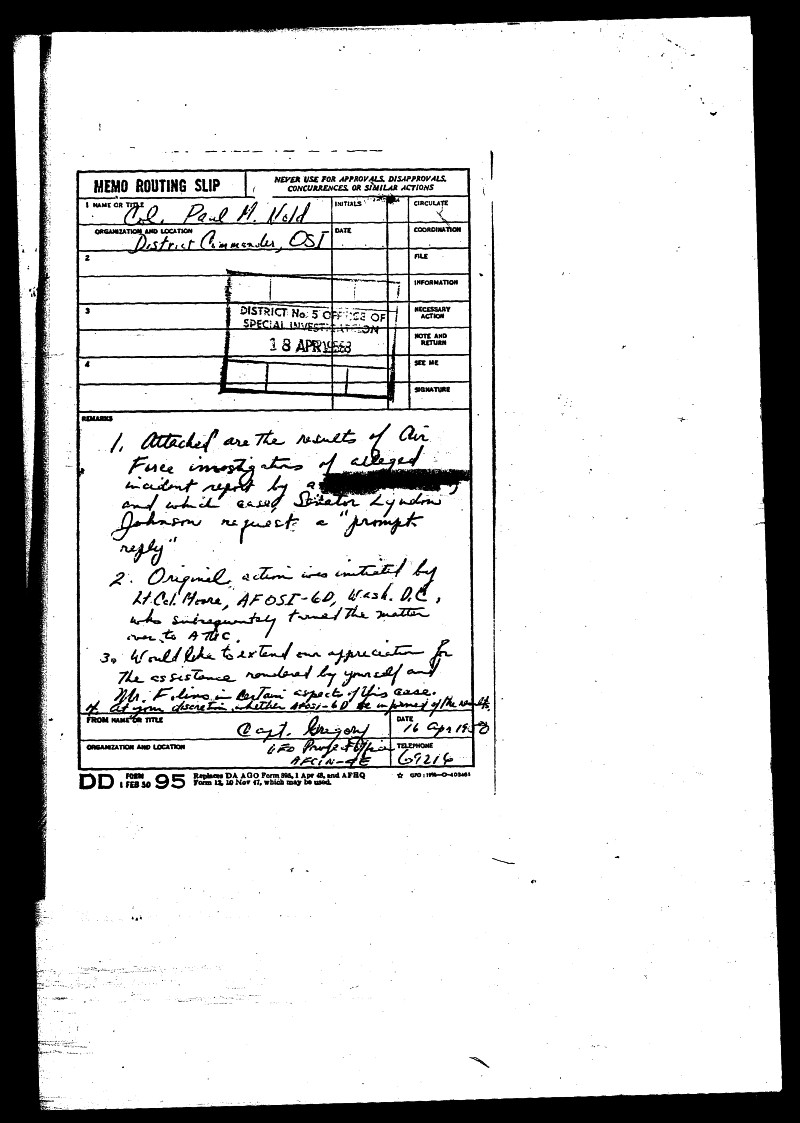 MEMO ROUTING SLIP
NEVER USE FOR APPROVALS, DISAPPROVALS,
CONCURRENCES, OR SIMILAR ACTIONS
1 NAME OR TITLE
Col. Paul M. Nold
INITIALS
CIRCULATE
ORGANIZATION AND LOCATION
District Commander, OSI
DATE
COORDINATION
2
FILE
INFORMATION
3
NECESSARY
ACTION
DISTRICT No. 5 OFFICE OF
SPECIAL INVESTIGATION
NOTE AND
RETURN
18 APR 1958
4
SEE ME
SIGNATURE
REMARKS
1. Attached are the results of Air
Force investigation of alleged
incident report by a
and which case, Senator Lyndon
Johnson request a "prompt
reply"
2. Original action was initiated by
Lt. Col. Moore, AFOSI-6D, Wash. D.C.,
who subsequently turned the matter
over to ATIC.
3. Would like to extend our appreciation for
the assistance rendered by yourself and
Mr. in certain aspects of this case.
4. At your discretion whether AFOSI-6D be informed of the results.
FROM NAME OR TITLE
Capt. Gregory
DATE
16 Apr 1958
ORGANIZATION AND LOCATION
UFO Project Officer
AFCIN-4E
TELEPHONE
69216
DD FORM 1 FEB 50 95
Replaces DA AGO Form 895, 1 Apr 48, and AFHQ
Form 12, 10 Nov 47, which may be used.